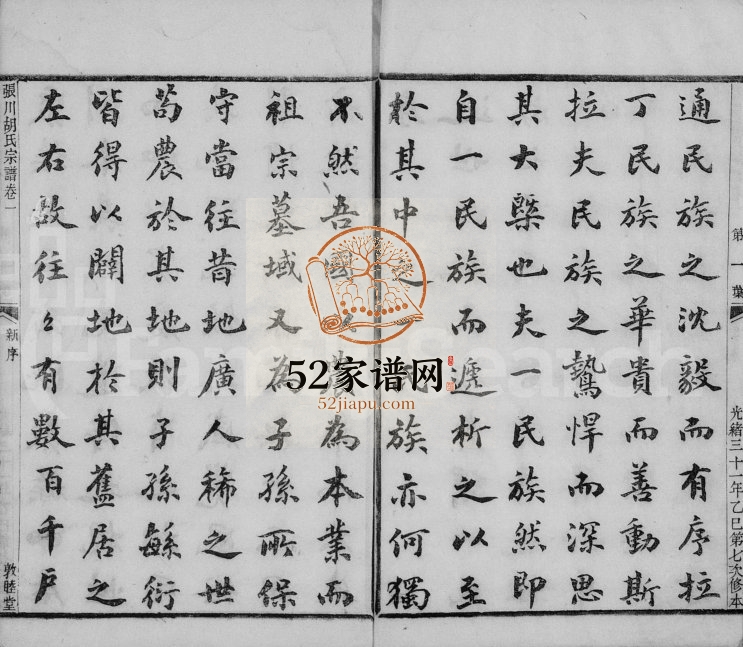 第一葉
光緒三十一年乙巳第七次修本
通民族之沈毅而有序拉
丁民族之華貴而善動斯
拉夫民族之鷙悍而深思
其大槩也夫一民族然即
自一民族而遞析之以至
於其中之族亦何獨
不然吾國農為本業而
祖宗墓域又為子孫所保
守當往昔地廣人稀之世
苟農於其地則子孫緐衍
皆得以闢地於其舊居之
左右故往々有數百千戶
張川胡氏宗譜卷一
新序
敦睦堂
52家谱网
52jiapu.com